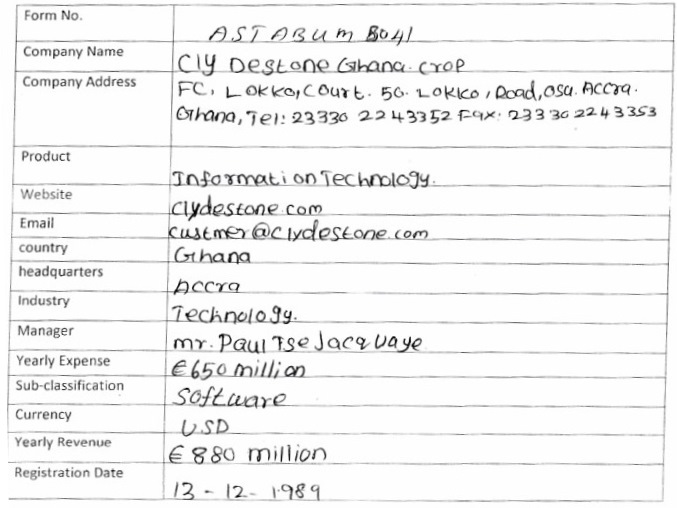 Form No. ASTABUM B041
Company Name Cly Destone Ghana. crop
Company Address FC, Lokko, Court. 50. Lokko, Road, osu. Accra.
Ghana, Tel: 23330 2243352 Fax: 23330 2243353
Product Information Technology.
Website Clydestone.com
Email custmer@clydestone.com
country Ghana
headquarters Accra
Industry Technology.
Manager mr. Paul Tse Jacquaye
Yearly Expense €650 million
Sub-classification Software
Currency USD
Yearly Revenue €880 million
Registration Date 13-12-1989